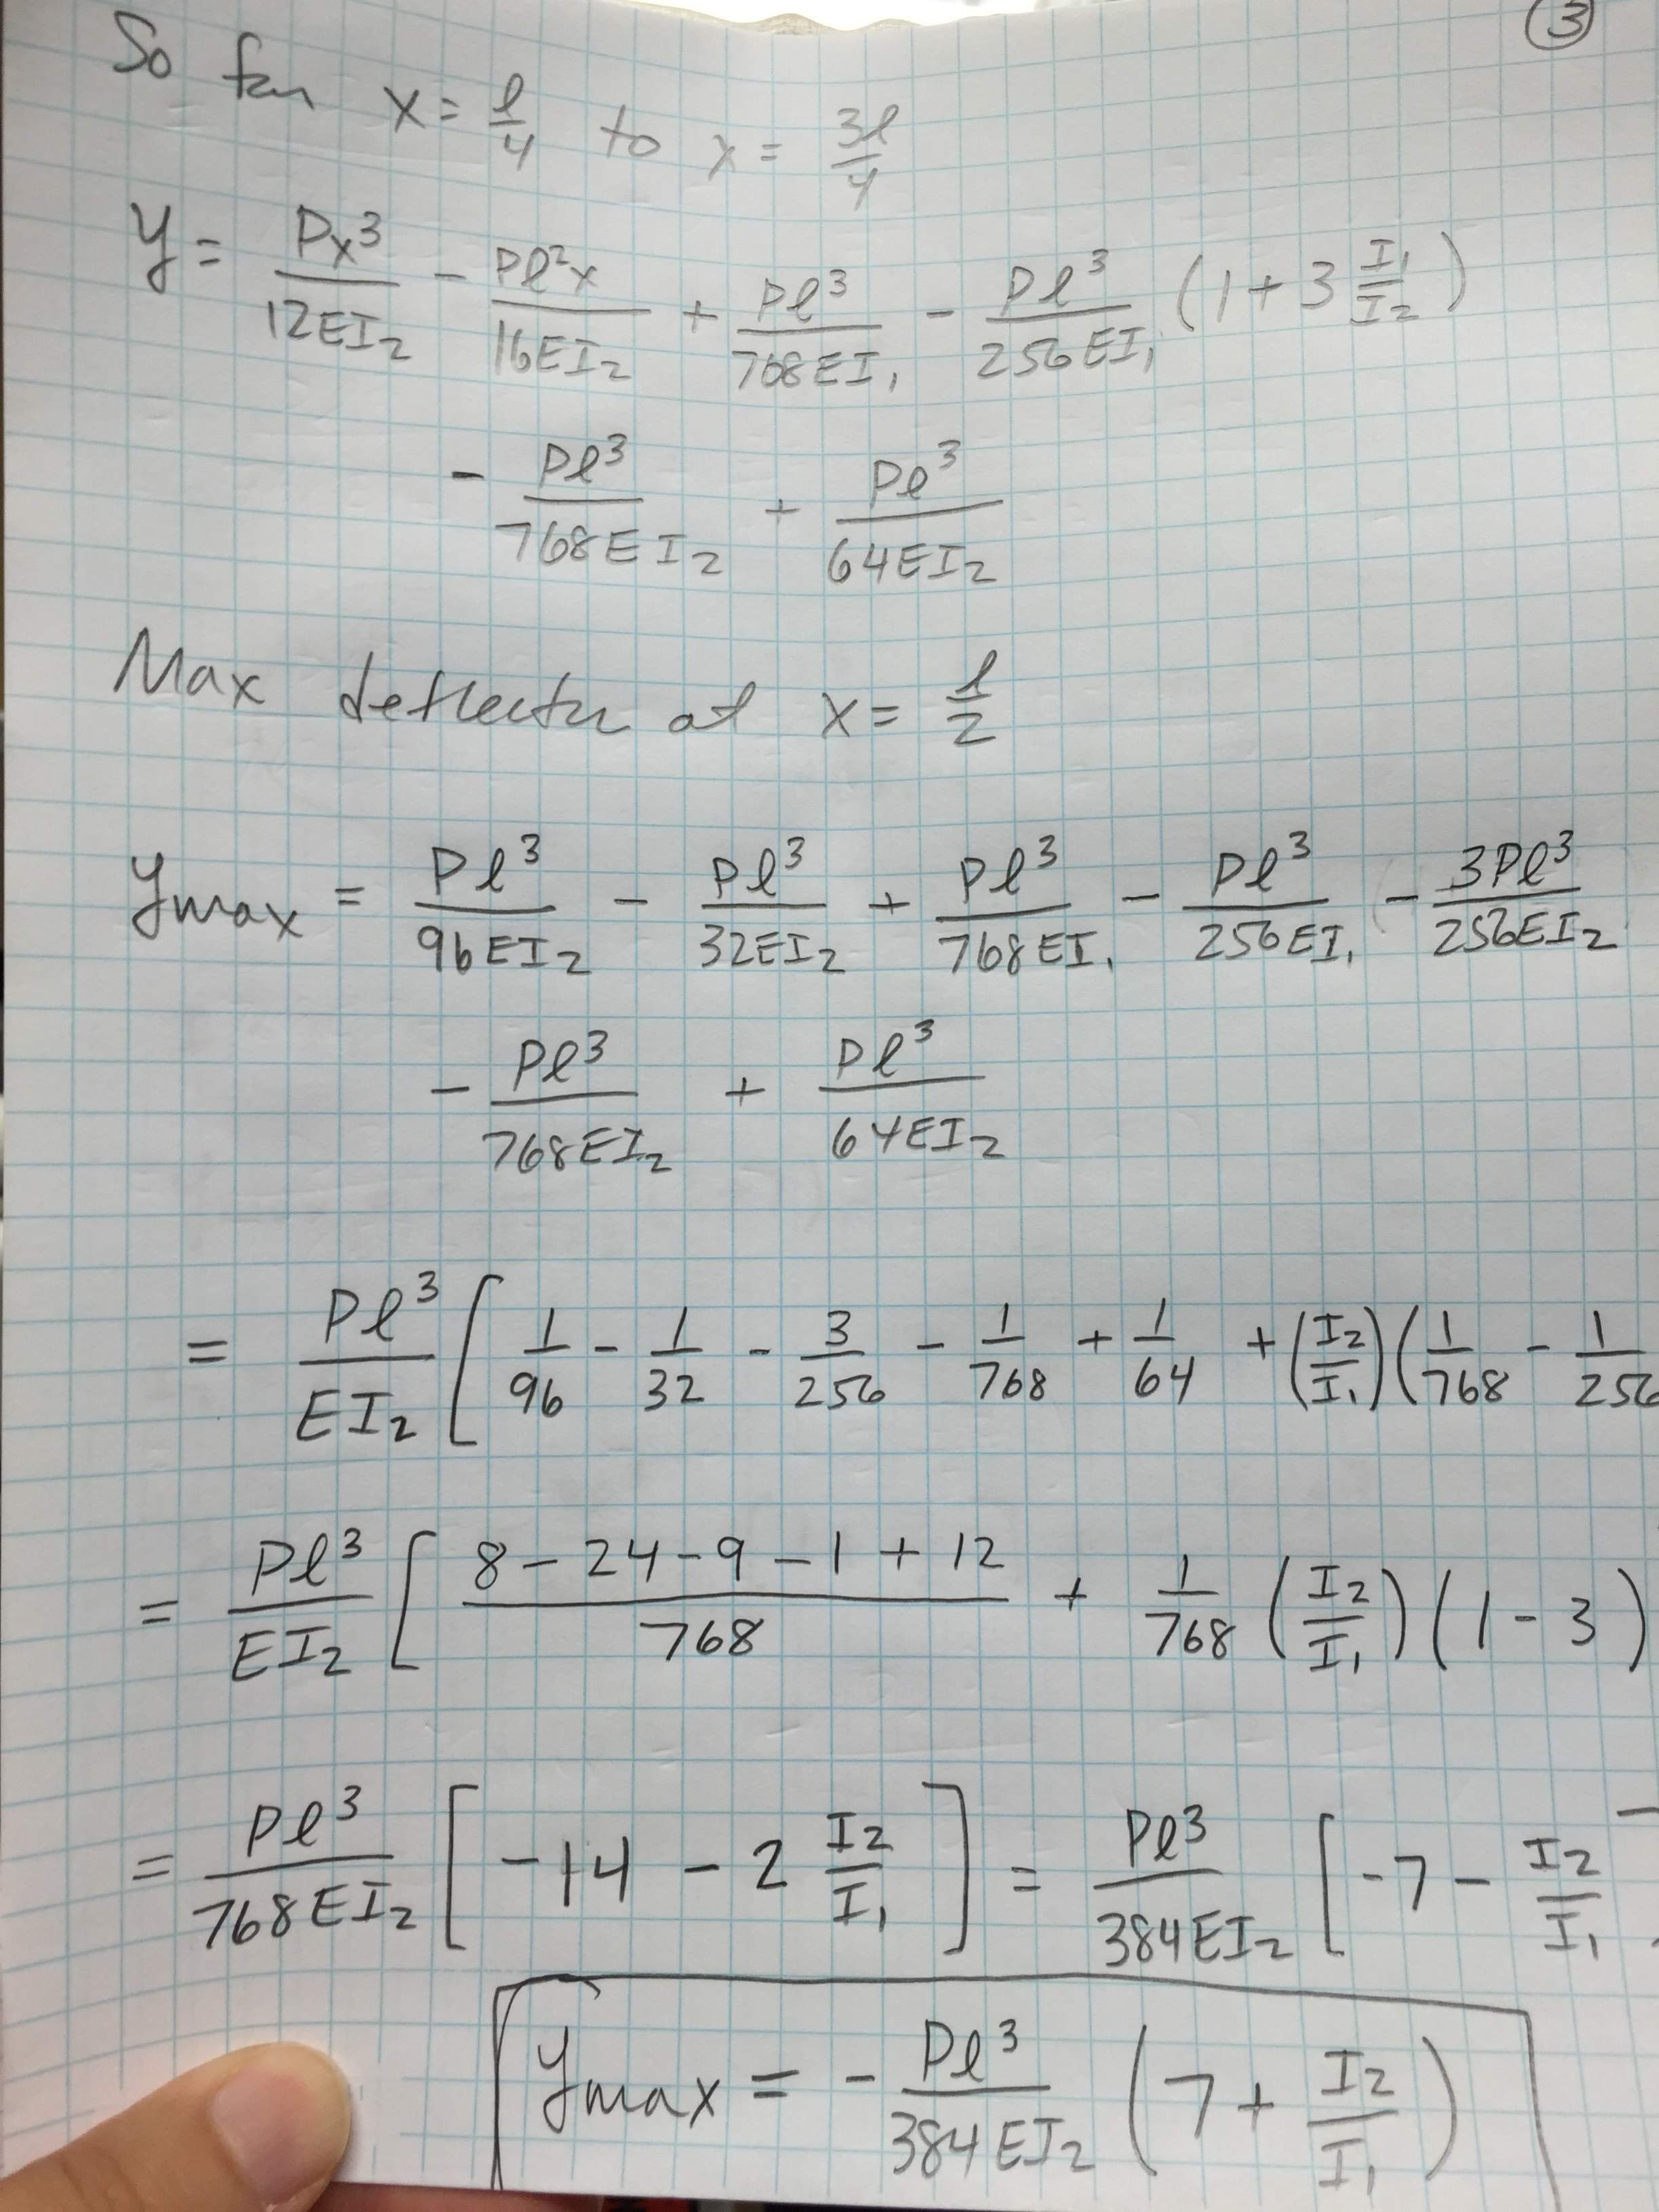 ③
So for x = l/4 to x = 3l/4
y = Px³/12EI₂ - Pl²x/16EI₂ + Pl³/768EI₁ - Pl³/256EI₁ (1 + 3 I₁/I₂)
- Pl³/768EI₂ + Pl³/64EI₂
Max deflectn at x = l/2
ymax = Pl³/96EI₂ - Pl³/32EI₂ + Pl³/768EI₁ - Pl³/256EI₁ - 3Pl³/256EI₂
- Pl³/768EI₂ + Pl³/64EI₂
= Pl³/EI₂ [ 1/96 - 1/32 - 3/256 - 1/768 + 1/64 + (I₂/I₁)(1/768 - 1/256
= Pl³/EI₂ [ (8 - 24 - 9 - 1 + 12)/768 + 1/768 (I₂/I₁)(1 - 3)
= Pl³/768EI₂ [ -14 - 2 I₂/I₁ ] = Pl³/384EI₂ [ -7 - I₂/I₁ ]
ymax = - Pl³/384EI₂ (7 + I₂/I₁)